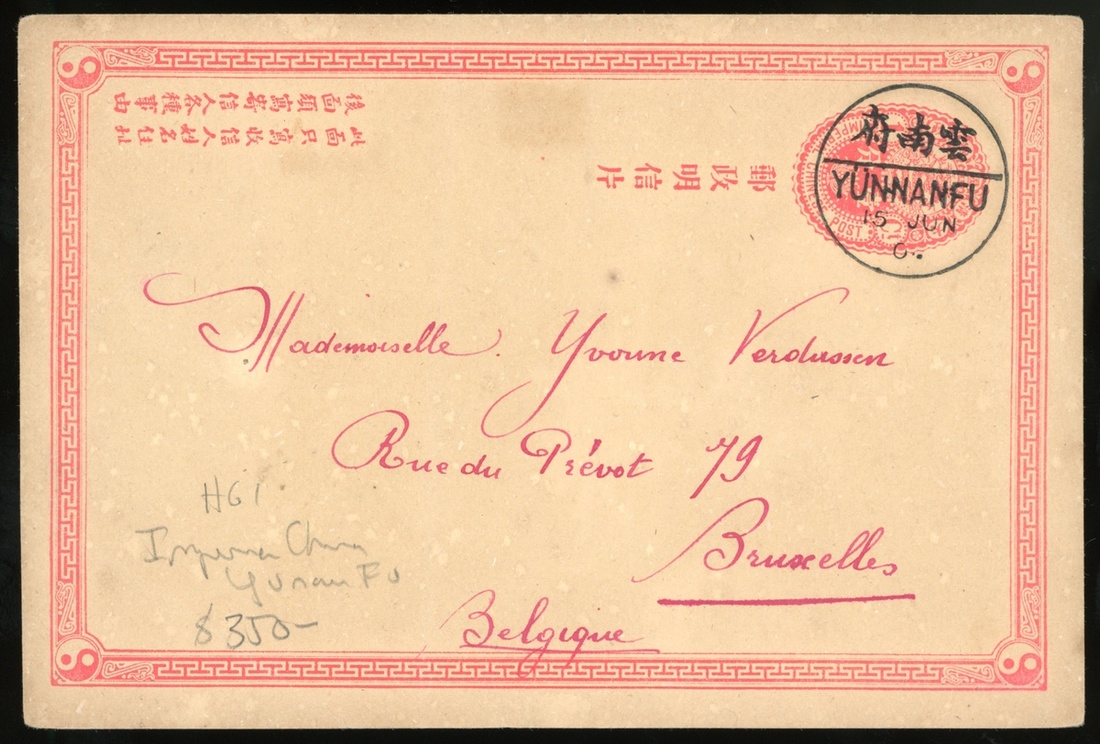 後面頭寫寄信人各種事由
此面只寫收信人姓名住址
郵政明信片
雲南府
YUNNANFU
15 JUN
POST
Mademoiselle Yvonne Verdussen
Rue du Prévot 79
Bruxelles
Belgique
HG 1
Imperial China
Yunan Fu
$350-